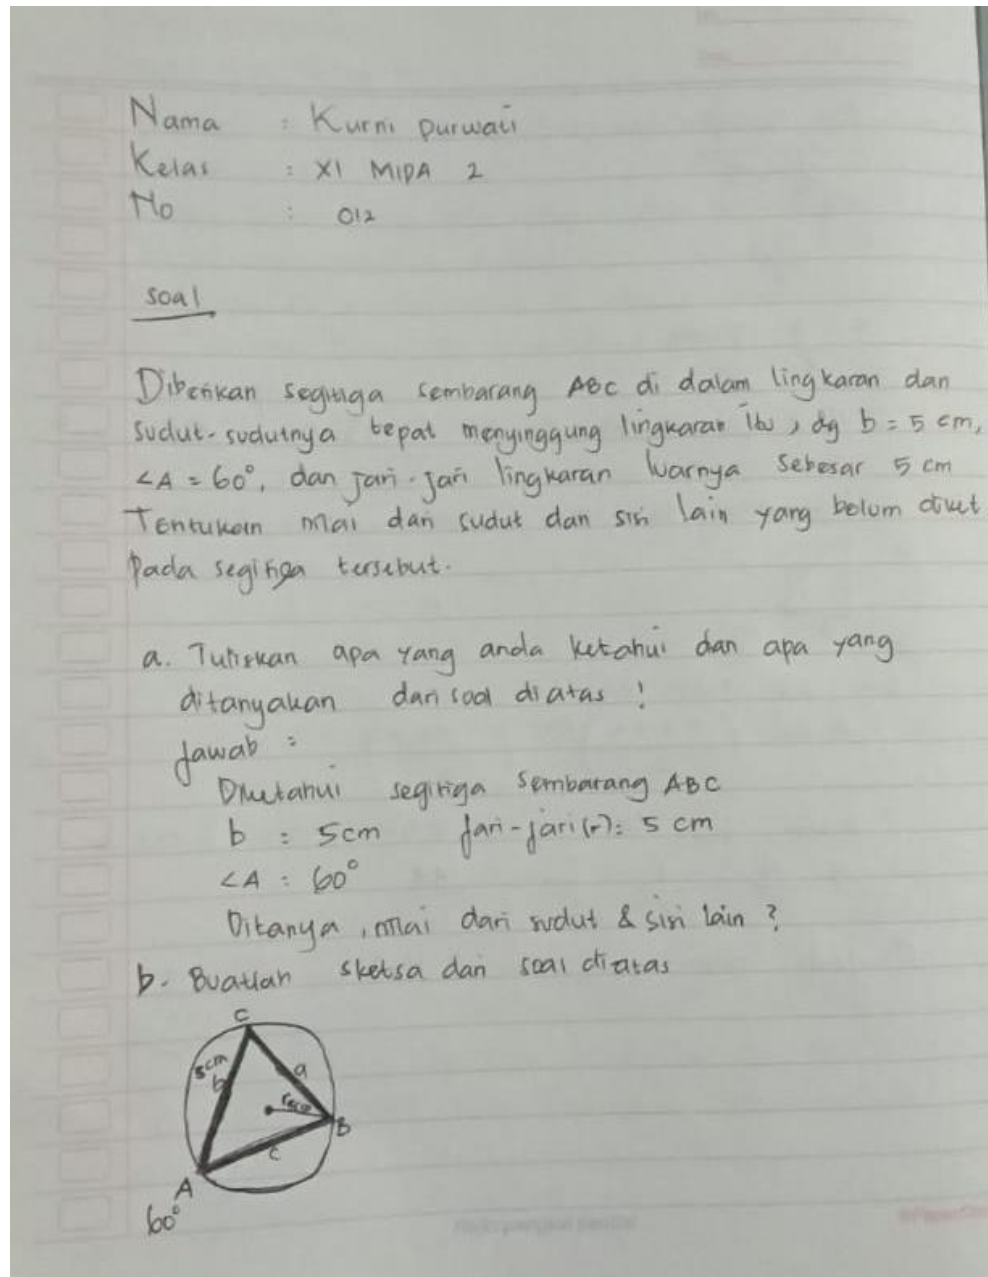 Nama : Kurni Purwati
Kelas : XI MIPA 2
No : 012
Soal
Diberikan segitiga sembarang ABC di dalam lingkaran dan
sudut-sudutnya tepat menyinggung lingkaran itu, dg b = 5 cm,
∠A = 60°, dan jari-jari lingkaran luarnya sebesar 5 cm
Tentukan nilai dari sudut dan sisi lain yang belum diket
pada segitiga tersebut.
a. Tuliskan apa yang anda ketahui dan apa yang
ditanyakan dari soal diatas !
Jawab :
Diketahui segitiga sembarang ABC
b = 5cm Jari-jari (r) = 5 cm
∠A = 60°
Ditanya, nilai dari sudut & sisi lain ?
b. Buatlah sketsa dari soal diatas
C
5cm
b
a
B
c
A
60°